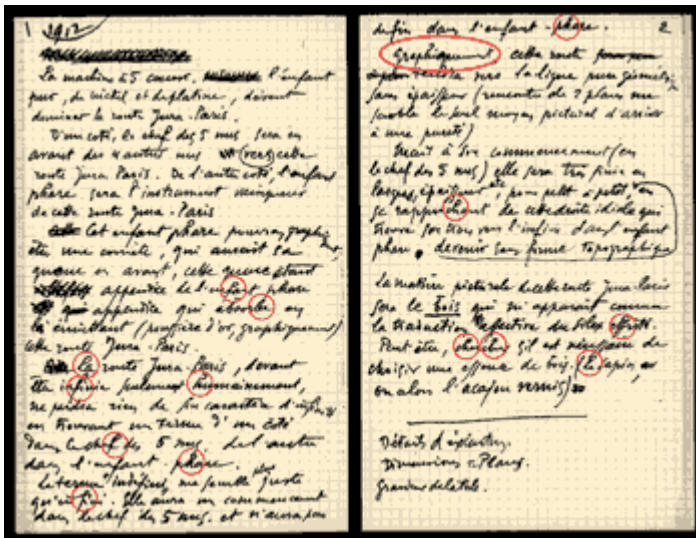 1 1912
La machine à 5 cœurs. l'enfant
pur, de nickel et de platine, doivent
dominer la route Jura-Paris.
D'un coté, le chef des 5 nus sera en
avant des 4 autres nus (vers) cette
route Jura-Paris. De l'autre coté, l'enfant
phare sera l'instrument vainqueur
de cette route Jura-Paris
Cet enfant phare pourra, graphiq
être une comète, qui aurait sa
queue en avant, cette queue étant
appendice de l'enfant phare
appendice qui absorbe en
l'émiettant (poussière d'or, graphiquement)
cette route Jura-Paris.
La route Jura-Paris, devant
être infinie seulement humainement,
ne perdra rien de son caractère d'infini
en trouvant un terme d'un coté
dans le chef des 5 nus, de l'autre
dans l'enfant-phare.
Le terme "indéfini" me semble plus juste
qu'infini. Elle aura un commencement
dans le chef des 5 nus, et n'aura pas
2
de fin dans l'enfant-phare.
Graphiquement, cette route
tendra vers la ligne pure géométriq
sans épaisseur (rencontre de 2 plans me
semble le seul moyen pictural d'arriver
à une pureté)
Mais à son commencement (en
le chef des 5 nus) elle sera très finie en
largeur, épaisseur etc, pour petit à petit, en
se rapprochant de cette droite idéale qui
trouve son trou vers l'infini dans l'enfant
phare. devenir sans forme topographique
La matière picturale de cette route Jura-Paris
sera le bois qui m'apparait comme
la traduction affective du silex effrité.
Peut être, chercher s'il est nécessaire de
choisir une essence de bois. (le sapin, ou
ou alors l'acajou vernis)
Détails d'exécution.
Dimensions = Plans.
Grandeur de la toile.